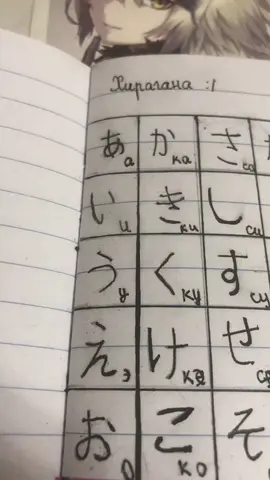 Хирагана :1
あ а か ка さ са
い и き ки し си
う у く ку す су
え э け кэ せ сэ
お о こ ко そ